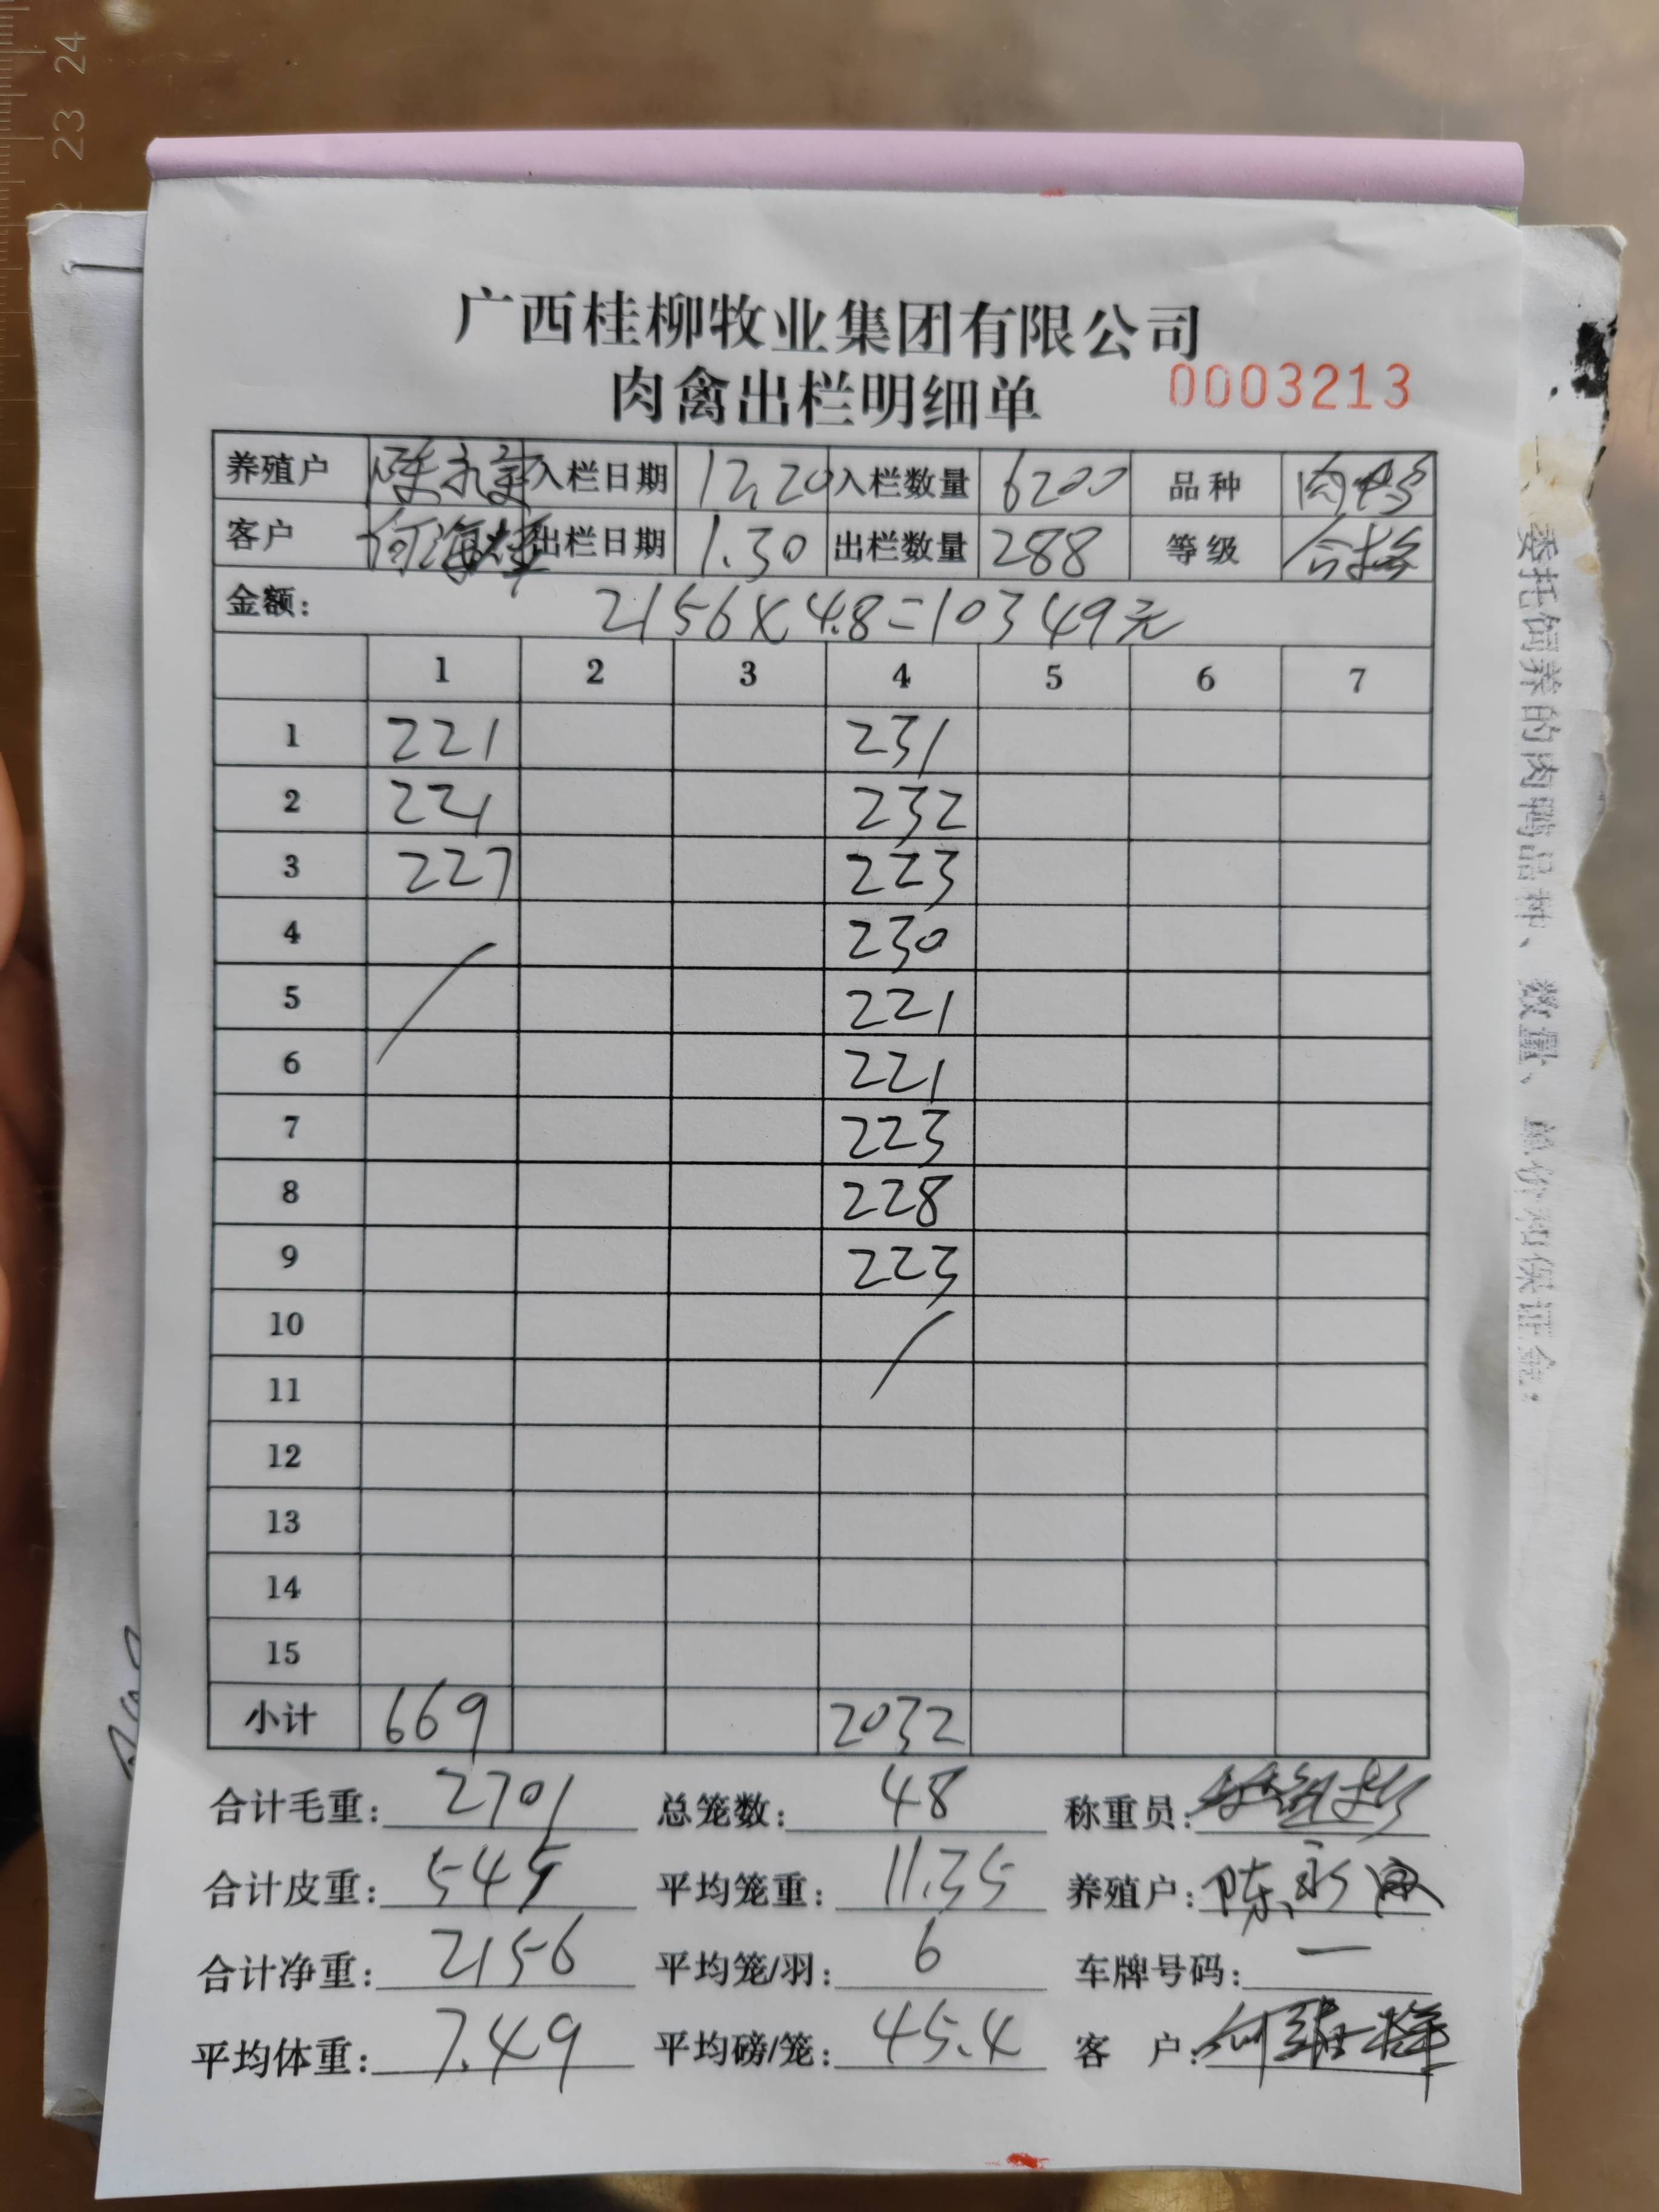 24
23
广西桂柳牧业集团有限公司
肉禽出栏明细单 0003213
养殖户 入栏日期 12.20 入栏数量 6200 品种 肉鸭
客户 何海 出栏日期 1.30 出栏数量 288 等级 合格
金额: 2156×4.8=10349元
1 2 3 4 5 6 7
1 221 231
2 221 232
3 227 223
4 230
5 221
6 221
7 223
8 228
9 223
10
11
12
13
14
15
小计 669 2032
合计毛重: 2701 总笼数: 48 称重员:
合计皮重: 545 平均笼重: 11.35 养殖户: 陈永
合计净重: 2156 平均笼/羽: 6 车牌号码: 一
平均体重: 7.49 平均磅/笼: 45.4 客 户: 何
委托饲养的肉鸭品种、数量、单价和保证金。